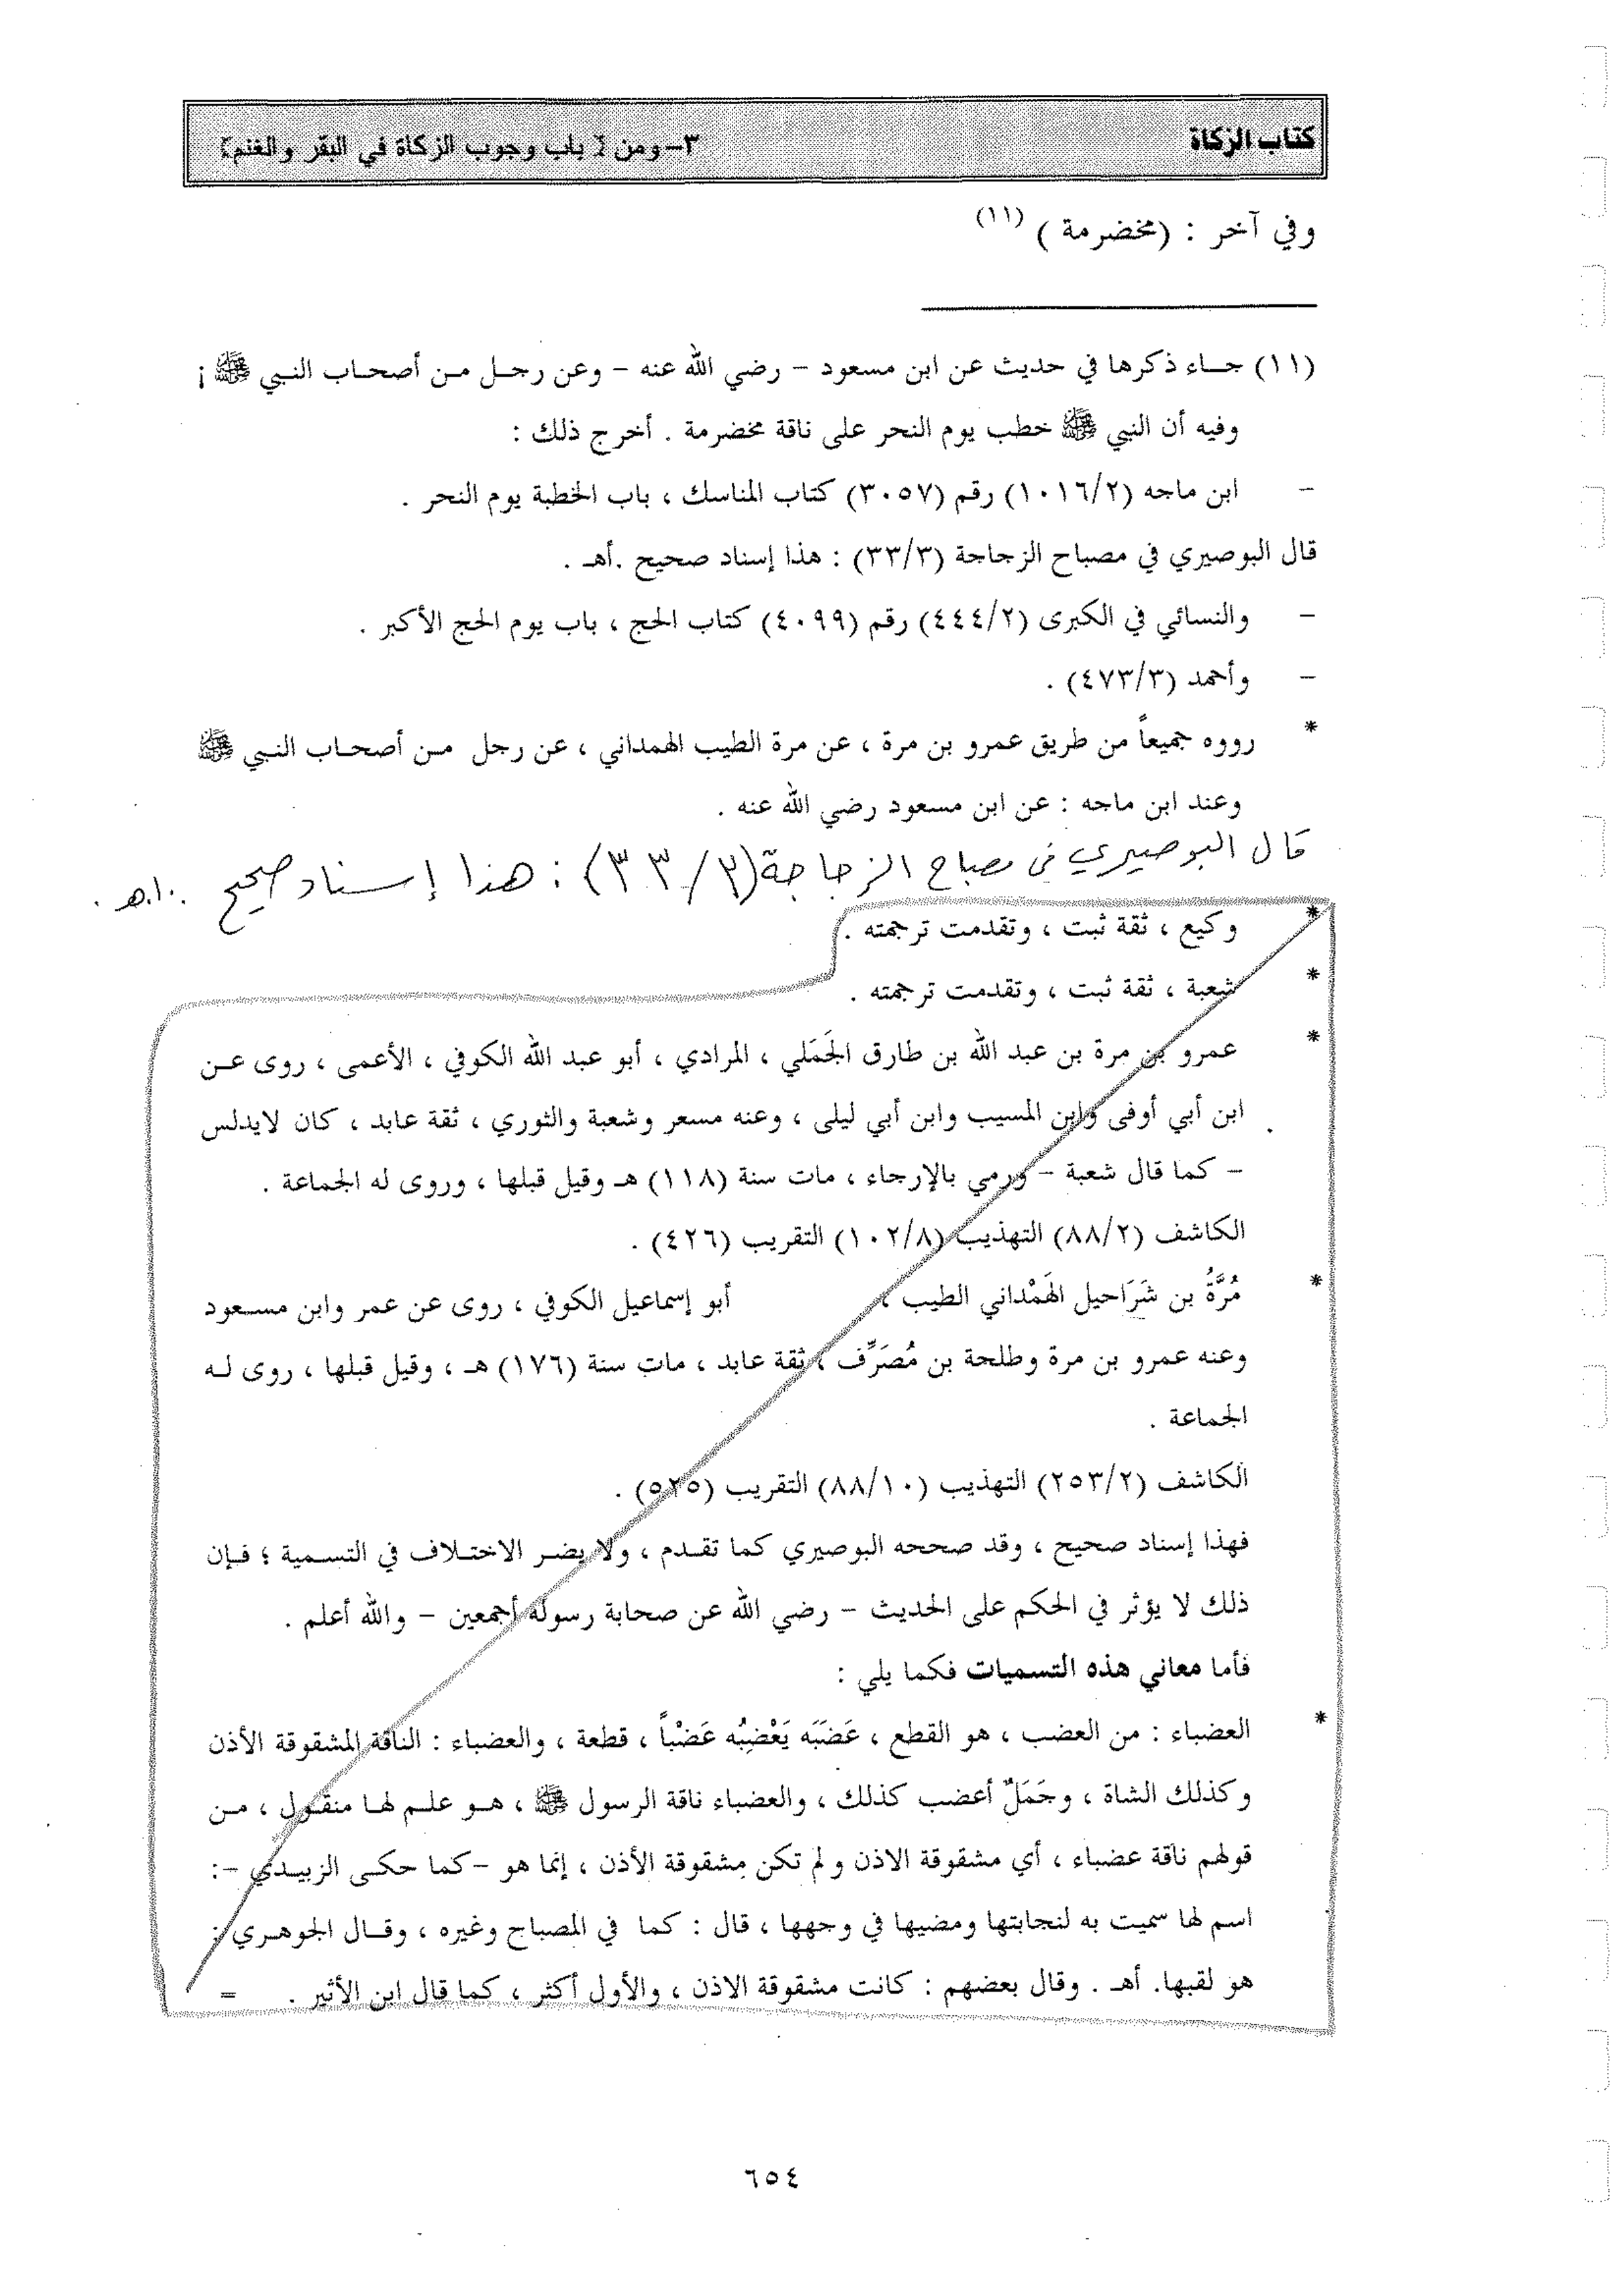 كتاب الزكاة
٣- ومن [ باب وجوب الزكاة في البقر والغنم]
وفي آخر : (مخضرمة ) (١١)
(١١) جـاء ذكرها في حديث عن ابن مسعود – رضي الله عنه – وعن رجـل مـن أصحـاب النـبي ﷺ ؛
وفيه أن النبي ﷺ خطب يوم النحر على ناقة مخضرمة . أخرج ذلك :
– ابن ماجه (١٠١٦/٢) رقم (٣٠٥٧) كتاب المناسك ، باب الخطبة يوم النحر .
قال البوصيري في مصباح الزجاجة (٣٣/٣) : هذا إسناد صحيح .أهـ .
– والنسائي في الكبرى (٤٤٤/٢) رقم (٤٠٩٩) كتاب الحج ، باب يوم الحج الأكبر .
– وأحمد (٤٧٣/٣) .
* رووه جميعاً من طريق عمرو بن مرة ، عن مرة الطيب الهمداني ، عن رجل مـن أصحـاب النـبي ﷺ
وعند ابن ماجه : عن ابن مسعود رضي الله عنه .
قال البوصيري في مصباح الزجاجة (٣٣/٣) : هذا إسناد صحيح . ا.هـ .
* وكيع ، ثقة ثبت ، وتقدمت ترجمته .
* شعبة ، ثقة ثبت ، وتقدمت ترجمته .
* عمرو بن مرة بن عبد الله بن طارق الجَمَلي ، المرادي ، أبو عبد الله الكوفي ، الأعمى ، روى عـن
ابن أبي أوفى وابن المسيب وابن أبي ليلى ، وعنه مسعر وشعبة والثوري ، ثقة عابد ، كان لايدلس
– كما قال شعبة – ورمي بالإرجاء ، مات سنة (١١٨) هـ وقيل قبلها ، وروى له الجماعة .
الكاشف (٨٨/٢) التهذيب (١٠٢/٨) التقريب (٤٢٦) .
* مُرَّةُ بن شَرَاحيل الهَمْداني الطيب ، أبو إسماعيل الكوفي ، روى عن عمر وابن مسـعود
وعنه عمرو بن مرة وطلحة بن مُصَرِّف ، ثقة عابد ، مات سنة (١٧٦) هـ ، وقيل قبلها ، روى لـه
الجماعة .
الكاشف (٢٥٣/٢) التهذيب (٨٨/١٠) التقريب (٥٢٥) .
فهذا إسناد صحيح ، وقد صححه البوصيري كما تقـدم ، ولا يضـر الاختـلاف في التسـمية ؛ فـإن
ذلك لا يؤثر في الحكم على الحديث – رضي الله عن صحابة رسوله أجمعين – والله أعلم .
فأما معاني هذه التسميات فكما يلي :
* العضباء : من العضب ، هو القطع ، عَضَبَه يَعْضِبُه عَضْباً ، قطعة ، والعضباء : الناقة المشقوقة الأذن
وكذلك الشاة ، وجَمَلٌ أعضب كذلك ، والعضباء ناقة الرسول ﷺ ، هـو علـم لهـا منقـول ، مـن
قولهم ناقة عضباء ، أي مشقوقة الاذن ولم تكن مشقوقة الأذن ، إنما هو –كما حكـى الزبيـدي –:
اسم لها سميت به لنجابتها ومضيها في وجهها ، قال : كما في المصباح وغيره ، وقـال الجوهـري :
هو لقبها. أهـ . وقال بعضهم : كانت مشقوقة الاذن ، والأول أكثر ، كما قال ابن الأثير . =
٦٥٤